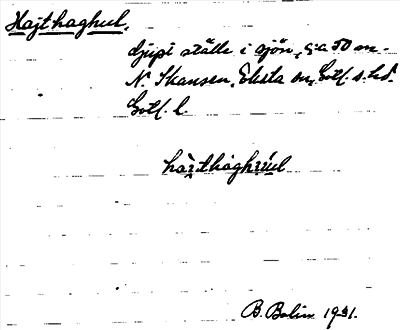 Hajthaghul.
djupt ställe i sjön, c:a 50 m.
N. Skansen, Eksta sn, Gotl. s. hd.
Gotl. l.
hàithàghùul
B. Bolin 1931.